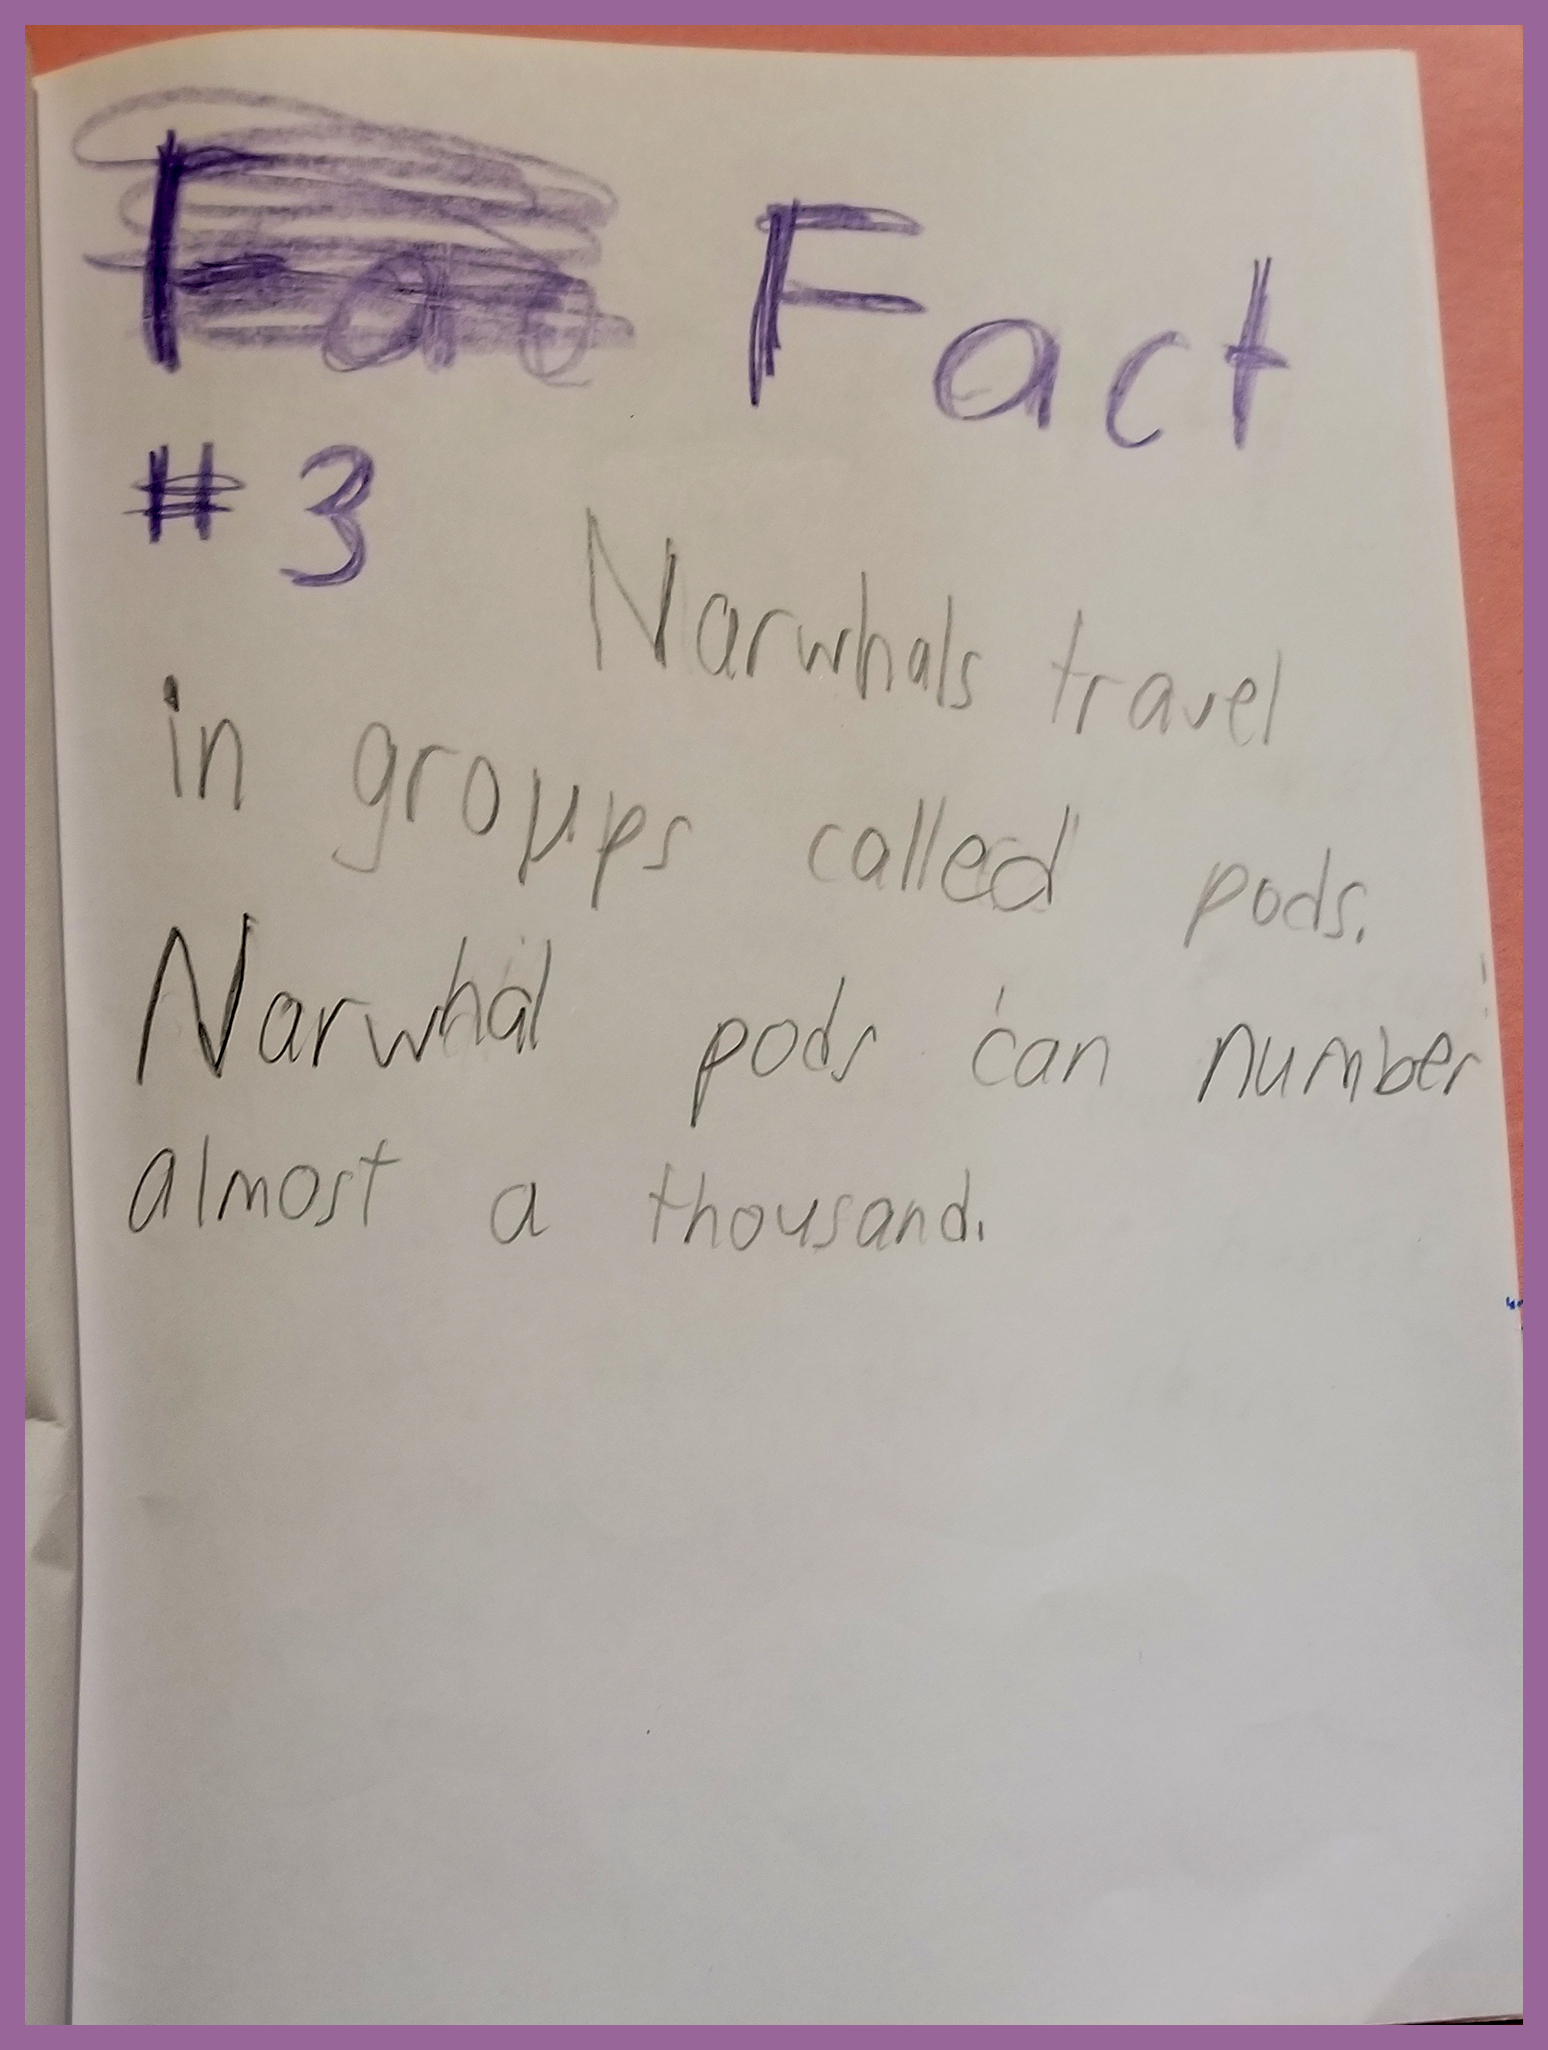 Fact
#3 Narwhals travel
in groups called pods.
Narwhal pods can number
almost a thousand.